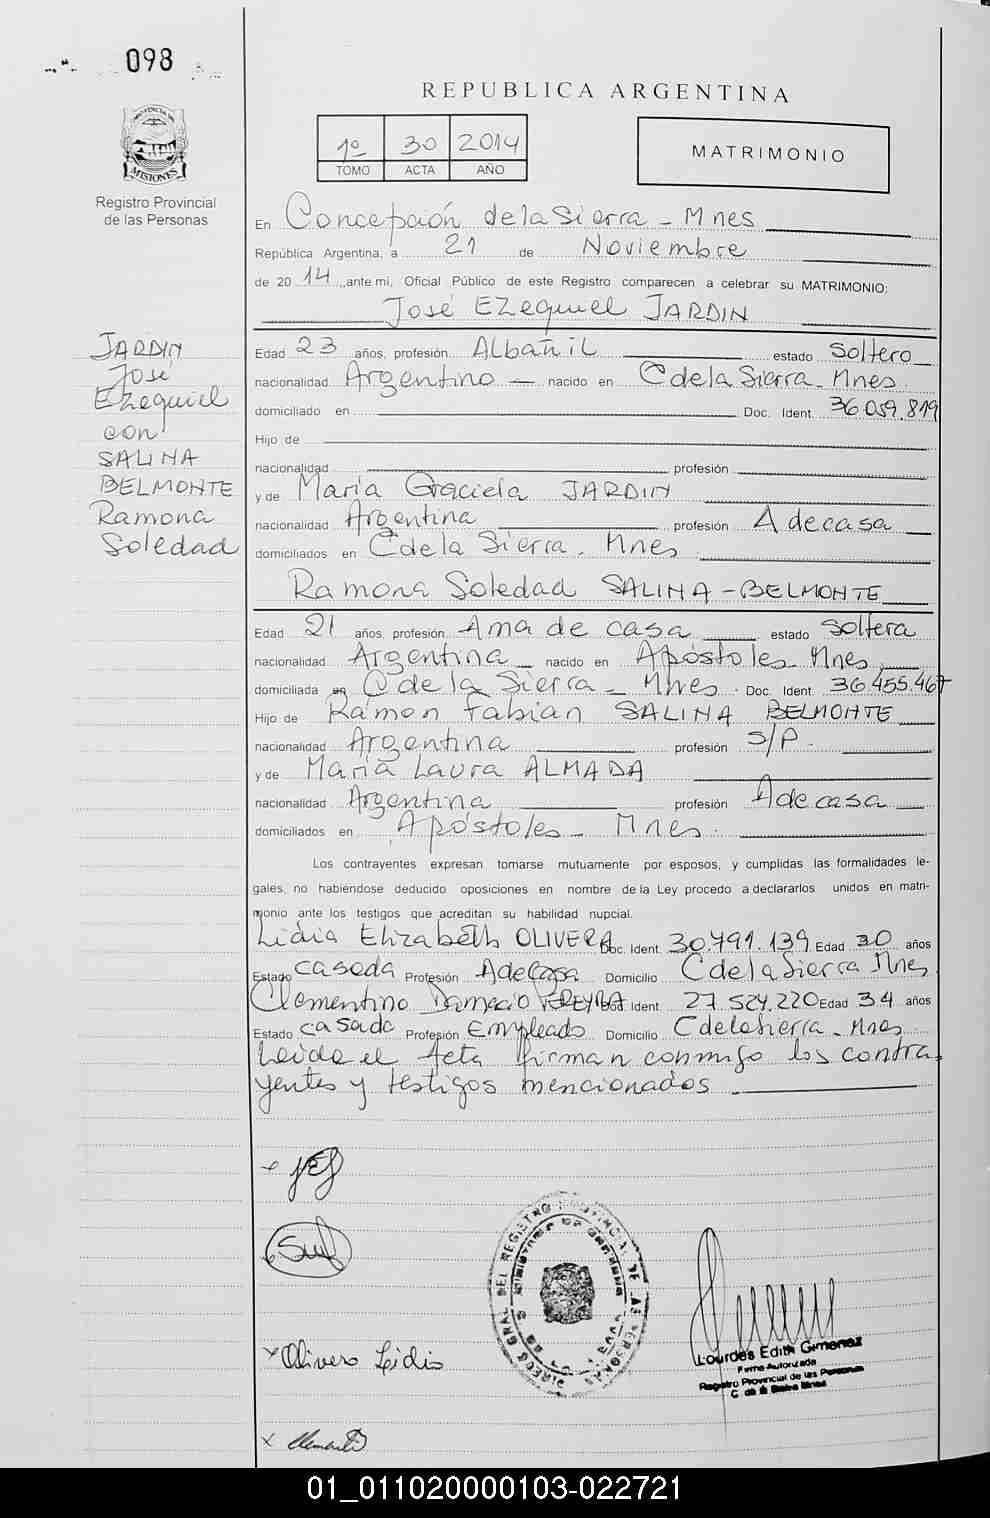 098
PROVINCIA DE
MISIONES
Registro Provincial
de las Personas
REPUBLICA ARGENTINA
1º 30 2014
TOMO ACTA AÑO
MATRIMONIO
En Concepción de la Sierra - Mnes
República Argentina, a 21 de Noviembre
de 2014, ante mi, Oficial Público de este Registro comparecen a celebrar su MATRIMONIO:
José Ezequiel JARDIN
JARDIN
José
Ezequiel
con
SALINA
BELMONTE
Ramona
Soledad
Edad 23 años, profesión Albañil estado Soltero
nacionalidad Argentino nacido en C de la Sierra - Mnes
domiciliado en Doc. Ident. 36.059.819
Hijo de
nacionalidad profesión
y de María Graciela JARDIN
nacionalidad Argentina profesión A de casa
domiciliados en C de la Sierra - Mnes
Ramona Soledad SALINA - BELMONTE
Edad 21 años, profesión Ama de casa estado Soltera
nacionalidad Argentina nacido en Apóstoles - Mnes
domiciliada en C de la Sierra - Mnes. Doc. Ident. 36.455.467
Hijo de Ramon Fabian SALINA BELMONTE
nacionalidad Argentina profesión S/P.
y de María Laura ALMADA
nacionalidad Argentina profesión A de casa
domiciliados en Apóstoles - Mnes.
Los contrayentes expresan tomarse mutuamente por esposos, y cumplidas las formalidades le-
gales, no habiéndose deducido oposiciones en nombre de la Ley procedo a declararlos unidos en matri-
monio ante los testigos que acreditan su habilidad nupcial.
Lidia Elizabeth OLIVERA Doc. Ident. 30.791.139 Edad 30 años
Estado casada Profesión A de casa Domicilio C de la Sierra Mnes
Clementino Damacio PEREYRA Doc. Ident. 27.524.220 Edad 34 años
Estado casado Profesión Empleado Domicilio C de la Sierra - Mnes
Leida el Acta firman conmigo los contra
yentes y testigos mencionados
x
x Olivera Lidia
DIRECC. GRAL. DEL REGISTRO PROVINCIAL DE LAS PERSONAS
MINISTERIO DE GOBIERNO
Lourdes Edith Gimenez
Firma Autorizada
Registro Provincial de las Personas
C. de la Sierra Mnes
x
01_011020000103-022721